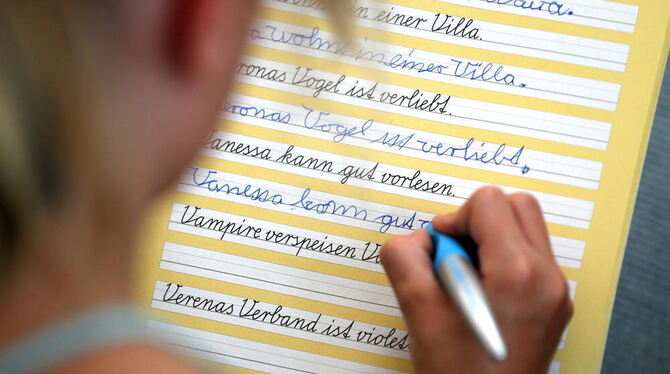 in einer Villa.
wohnt in einer Villa.
Vogel ist verliebt.
Veronas Vogel ist verliebt.
Vanessa kann gut vorlesen.
Vanessa kann gut
Vampire verspeisen
Verenas Verband ist violett